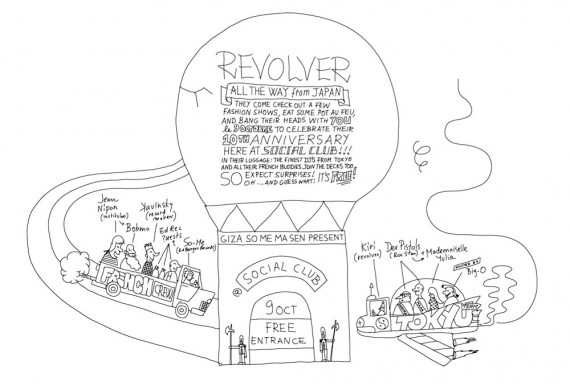 REVOLVER
ALL THE WAY from JAPAN
THEY COME CHECK OUT A FEW
FASHION SHOWS, EAT SOME POT AU FEU,
AND BANG THEIR HEADS WITH YOU
le 9 OCTOBRE TO CELEBRATE THEIR
10TH ANNIVERSARY
HERE AT SOCIAL CLUB!!!
IN THEIR LUGGAGE: THE FINEST DJ'S FROM TOKYO
AND ALL THEIR FRENCH BUDDIES JOIN THE DECKS TOO.
SO EXPECT SURPRISES!
OH... AND GUESS WHAT! IT'S FREE!
GIZA SO ME MA SEN PRESENT
@ SOCIAL CLUB
9 OCT
FREE
ENTRANCE
Jean
Nipon
(institubes)
Bobmo
Kavinsky
(record
makers)
Ed Rec
Guests
So-Me
(Ed Banger Records)
FRENCH CREW
Kiri
(revolver)
Dex Pistols
(Roc Star)
+ Mademoiselle
Yulia
HOSTED BY
Big-O
TOKYO
TEAM